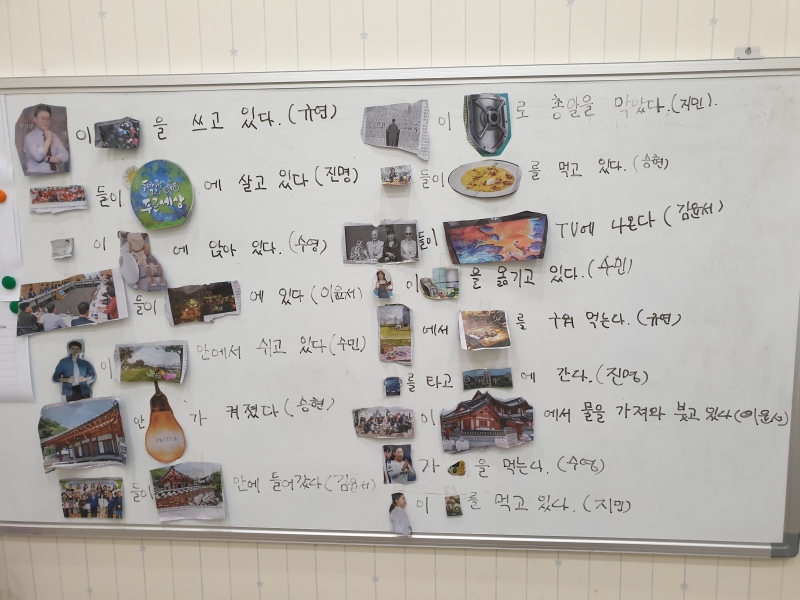 이 을 쓰고 있다. (규영)
들이 에 살고 있다 (진명)
푸른세상
이 에 앉아 있다. (수영)
들이 에 있다 (이윤서)
이 안에서 쉬고 있다 (수민)
안 가 켜졌다 (승현)
들이 안에 들어갔다 (김윤서)
이 로 총알을 막았다. (지민).
들이 를 먹고 있다. (승현)
들이 TV에 나온다 (김윤서)
이 을 옮기고 있다. (수민)
에서 를 구워 먹는다. (규영)
를 타고 에 간다. (진명)
이 에서 물을 가져와 붓고 있다 (이윤서)
가 을 먹는다. (수영)
이 를 먹고 있다. (지민)